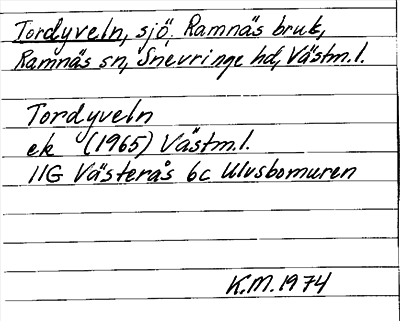 Tordyveln, sjö. Ramnäs bruk,
Ramnäs sn, Snevringe hd, Västm.l.
Tordyveln
ek (1965) Västm.l.
11G Västerås 6c Ulvsbomuren
K.M. 1974